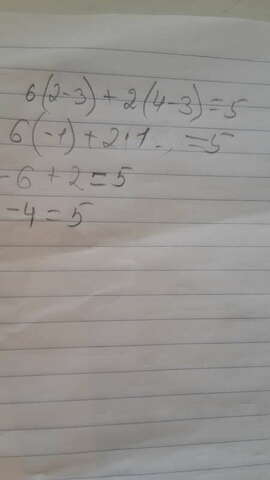 6(2-3)+2(4-3)=5
6(-1)+2·1 =5
-6+2=5
-4=5